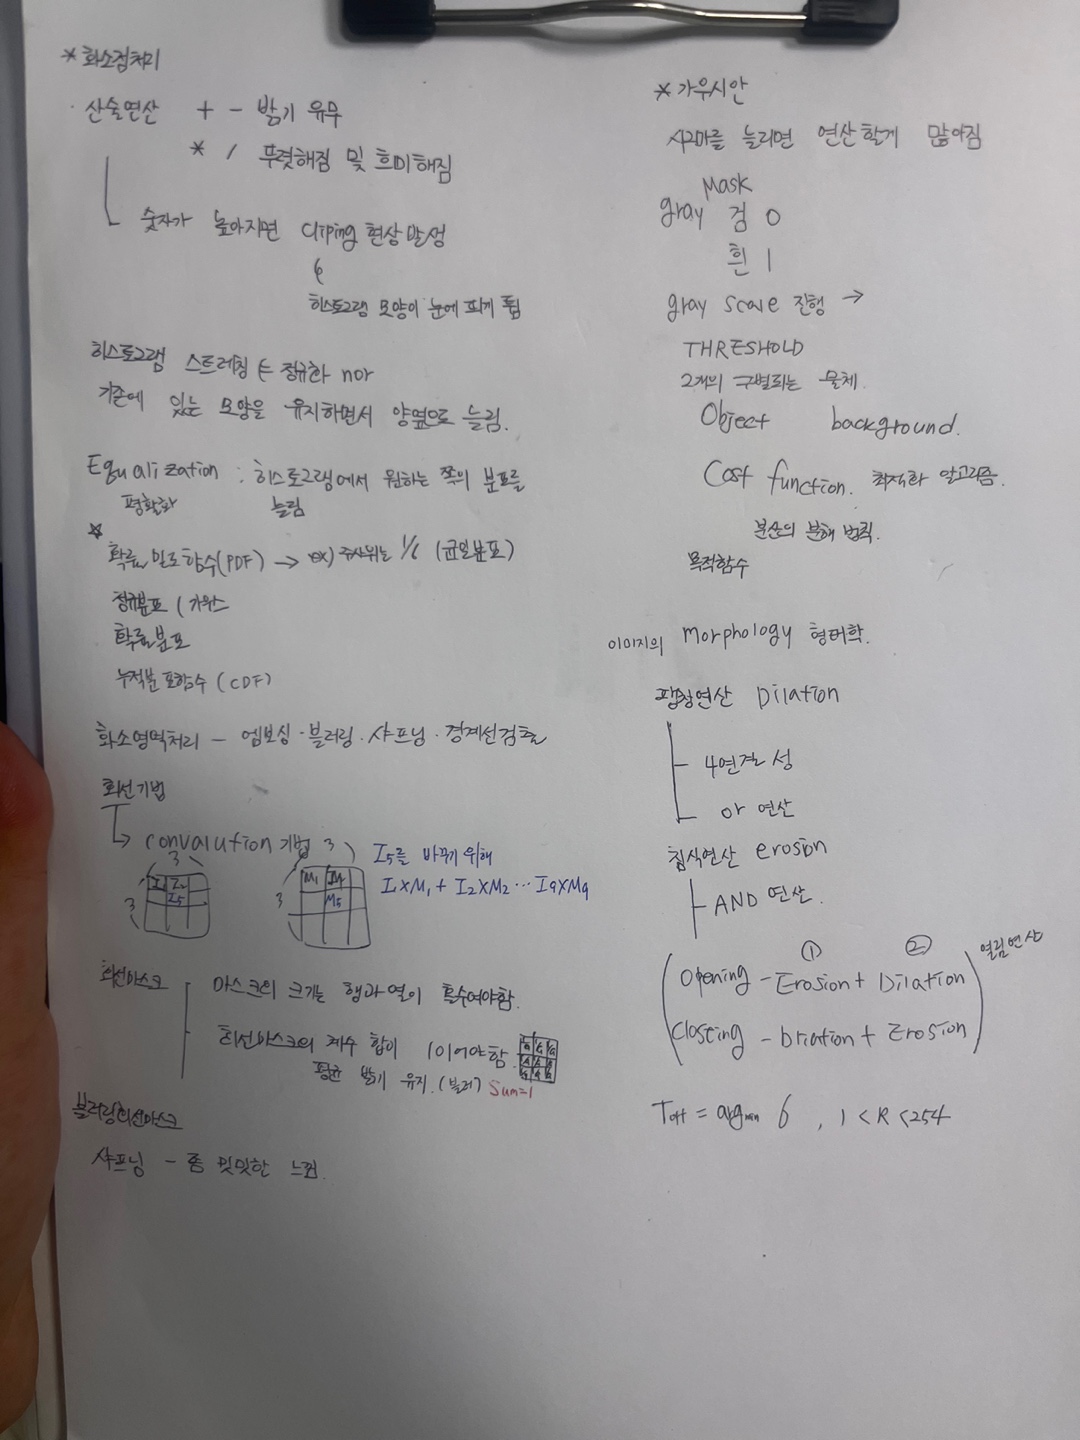 * 화소점처리
· 산술연산 + - 밝기 유무
* / 뚜렷해짐 및 흐미해짐
숫자가 높아지면 cliping 현상 발생
히스토그램 모양이 눈에 띄게 튐
히스토그램 스트레칭 는 정규화 nor
기존에 있는 모양을 유지하면서 양옆으로 늘림.
Equalization : 히스토그램에서 원하는 쪽의 분포를
평활화 늘림
확률밀도함수(PDF) → ex) 주사위는 1/6 (균일분포)
정규분포 (가우스
확률분포
누적분포함수 (CDF)
화소영역처리 - 엠보싱 · 블러링 · 샤프닝 · 경계선검출
회선기법
↳ convalution 기법
3 3
3 I1 I2 I5
3 M1 M5
I5를 바꾸기 위해
I1×M1 + I2×M2 ... I9×M9
회선마스크
마스크의 크기는 행과 열이 홀수여야함.
회선마스크의 계수 합이 1이어야함.
평균 밝기 유지. (블러) Sum=1
블러링회선마스크
샤프닝 - 좀 밋밋한 느낌.
* 가우시안
시그마를 늘리면 연산할게 많아짐
Mask
gray 검 0
흰 1
gray scale 진행 →
THRESHOLD
2개의 구별되는 물체.
Object background.
Cost function. 최적화 알고리즘.
분산의 분해 법칙.
목적함수
이미지의 morphology 형태학.
팽창연산 Dilation
4연결성
or 연산
침식연산 erosion
AND 연산.
① ② 열림연산
Opening - Erosion + Dilation
Closting - Driation + Erosion
= argmin 6 , 1 < R < 254